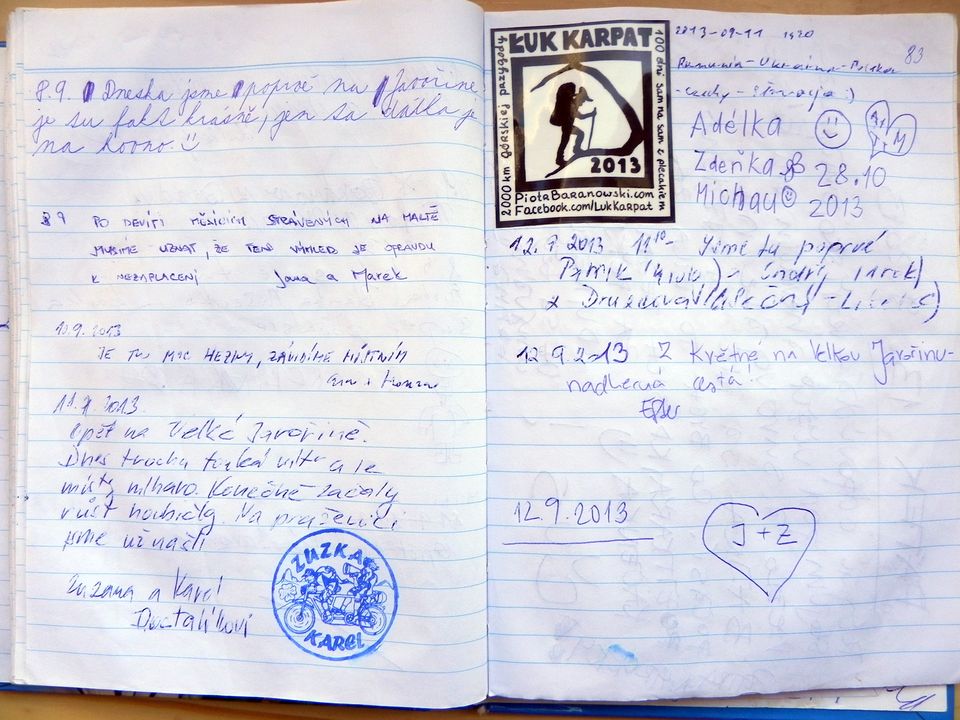 8.9. Dneska jsme poprvé na Javořině
je tu fakt krásně, jen ta dálka je
na hovno. :)
8 9 PO DEVÍTI MĚSÍCÍCH STRÁVENÝCH NA MALTĚ
MUSÍME UZNAT, ŽE TENTO VÝHLED JE OPRAVDU
K NEZAPLACENÍ Jana a Marek
10.9.2013
JE TU MOC HEZKY, ZÁVIDÍME MÍSTNÍM
11.9.2013
Opět na Velké Javořině.
Dnes trochu fouká vítr a je
místy mlhavo. Konečně začaly
růst houbičky. Na praženici
jsme už našli
Zuzana a Karel
Dostalíkovi
ZUZKA
KAREL
ŁUK KARPAT
2000 km górskiej przygody
100 dni sam na sam z plecakiem
2013
PiotrBaranowski.com
Facebook.com/LukKarpat
2013-09-11
83
Rumunia - Ukraina - Polska
- Czechy - Słowacja :)
Adélka
A+M
Zdeňka 28.10
Michau 2013
12.9 2013 11 10 Jsme tu poprvé
12.9 2013 Z Květné na Velkou Javořinu-
nadherná cesta!
12.9.2013
J+Z